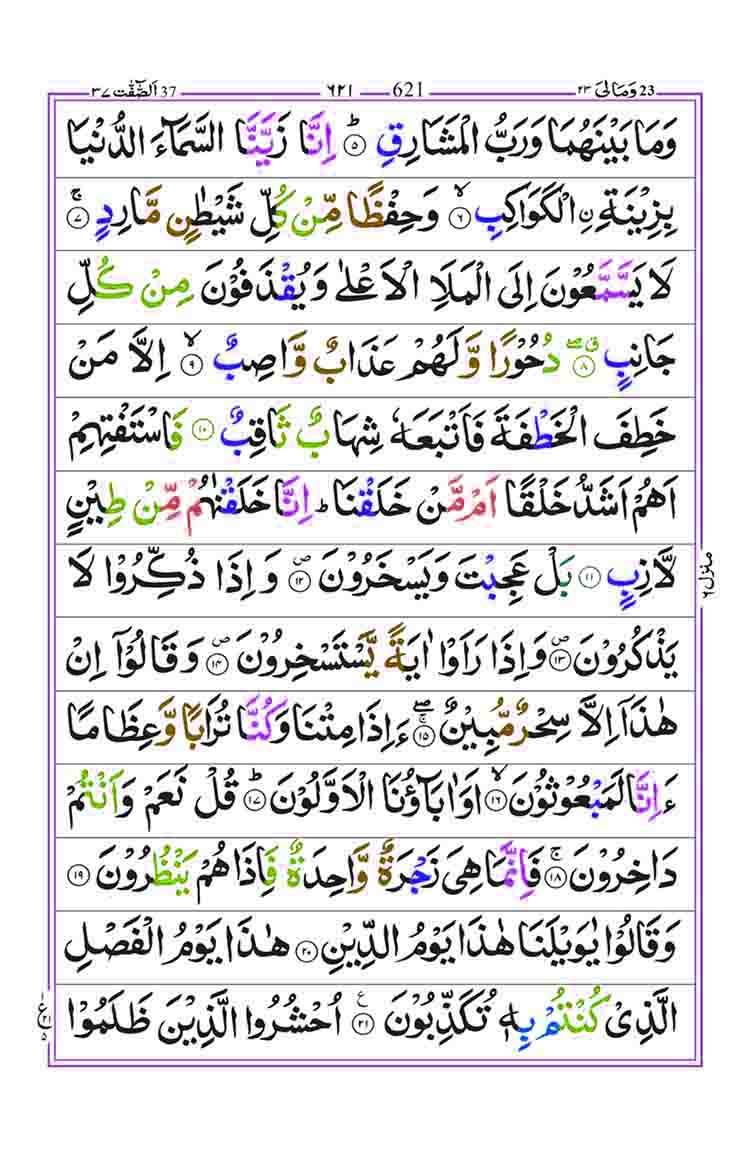 23 وَمَا لِیَ ۲۳ 621 ٦٢١ 37 اَلصّٰٓفّٰت ۳۷
وَمَا بَيْنَهُمَا وَرَبُّ الْمَشَارِقِ ؕ‏ ۵ اِنَّا زَيَّنَّا السَّمَآءَ الدُّنْيَا
بِزِيْنَةِ ۨالْكَوَاكِبِ ۙ‏ ۶ وَحِفْظًا مِّنْ كُلِّ شَيْطٰنٍ مَّارِدٍ ۚ‏ ۷
لَا يَسَّمَّعُوْنَ اِلَى الْمَلَاِ الْاَعْلٰى وَيُقْذَفُوْنَ مِنْ كُلِّ
جَانِبٍ ۖ ق ۸ دُحُوْرًا وَّلَهُمْ عَذَابٌ وَّاصِبٌ ۙ‏ ۹ اِلَّا مَنْ
خَطِفَ الْخَطْفَةَ فَاَتْبَعَهٗ شِهَابٌ ثَاقِبٌ ۱۰ فَاسْتَفْتِهِمْ
اَهُمْ اَشَدُّ خَلْقًا اَمْ مَّنْ خَلَقْنَا ؕ اِنَّا خَلَقْنٰهُمْ مِّنْ طِيْنٍ
لَّازِبٍ ۱۱ بَلْ عَجِبْتَ وَيَسْخَرُوْنَ ۱۲ ص وَاِذَا ذُكِّرُوْا لَا
يَذْكُرُوْنَ ۱۳ ص وَاِذَا رَاَوْا اٰيَةً يَّسْتَسْخِرُوْنَ ۱۴ ص وَقَالُوْٓا اِنْ
هٰذَآ اِلَّا سِحْرٌ مُّبِيْنٌ ۖ ۚ ۱۵ ءَاِذَا مِتْنَا وَكُنَّا تُرَابًا وَّعِظَامًا
ءَاِنَّا لَمَبْعُوْثُوْنَ ۙ‏ ۱۶ اَوَاٰبَآؤُنَا الْاَوَّلُوْنَ ؕ‏ ۱۷ قُلْ نَعَمْ وَاَنْتُمْ
دَاخِرُوْنَ ۚ‏ ۱۸ فَاِنَّمَا هِىَ زَجْرَةٌ وَّاحِدَةٌ فَاِذَا هُمْ يَنْظُرُوْنَ ۱۹
وَقَالُوْا يٰوَيْلَنَا هٰذَا يَوْمُ الدِّيْنِ ۲۰ هٰذَا يَوْمُ الْفَصْلِ
الَّذِىْ كُنْتُمْ بِهٖ تُكَذِّبُوْنَ ۲۱ ع اُحْشُرُوا الَّذِيْنَ ظَلَمُوْا
منزل ٦
ع ۲۱ ۵